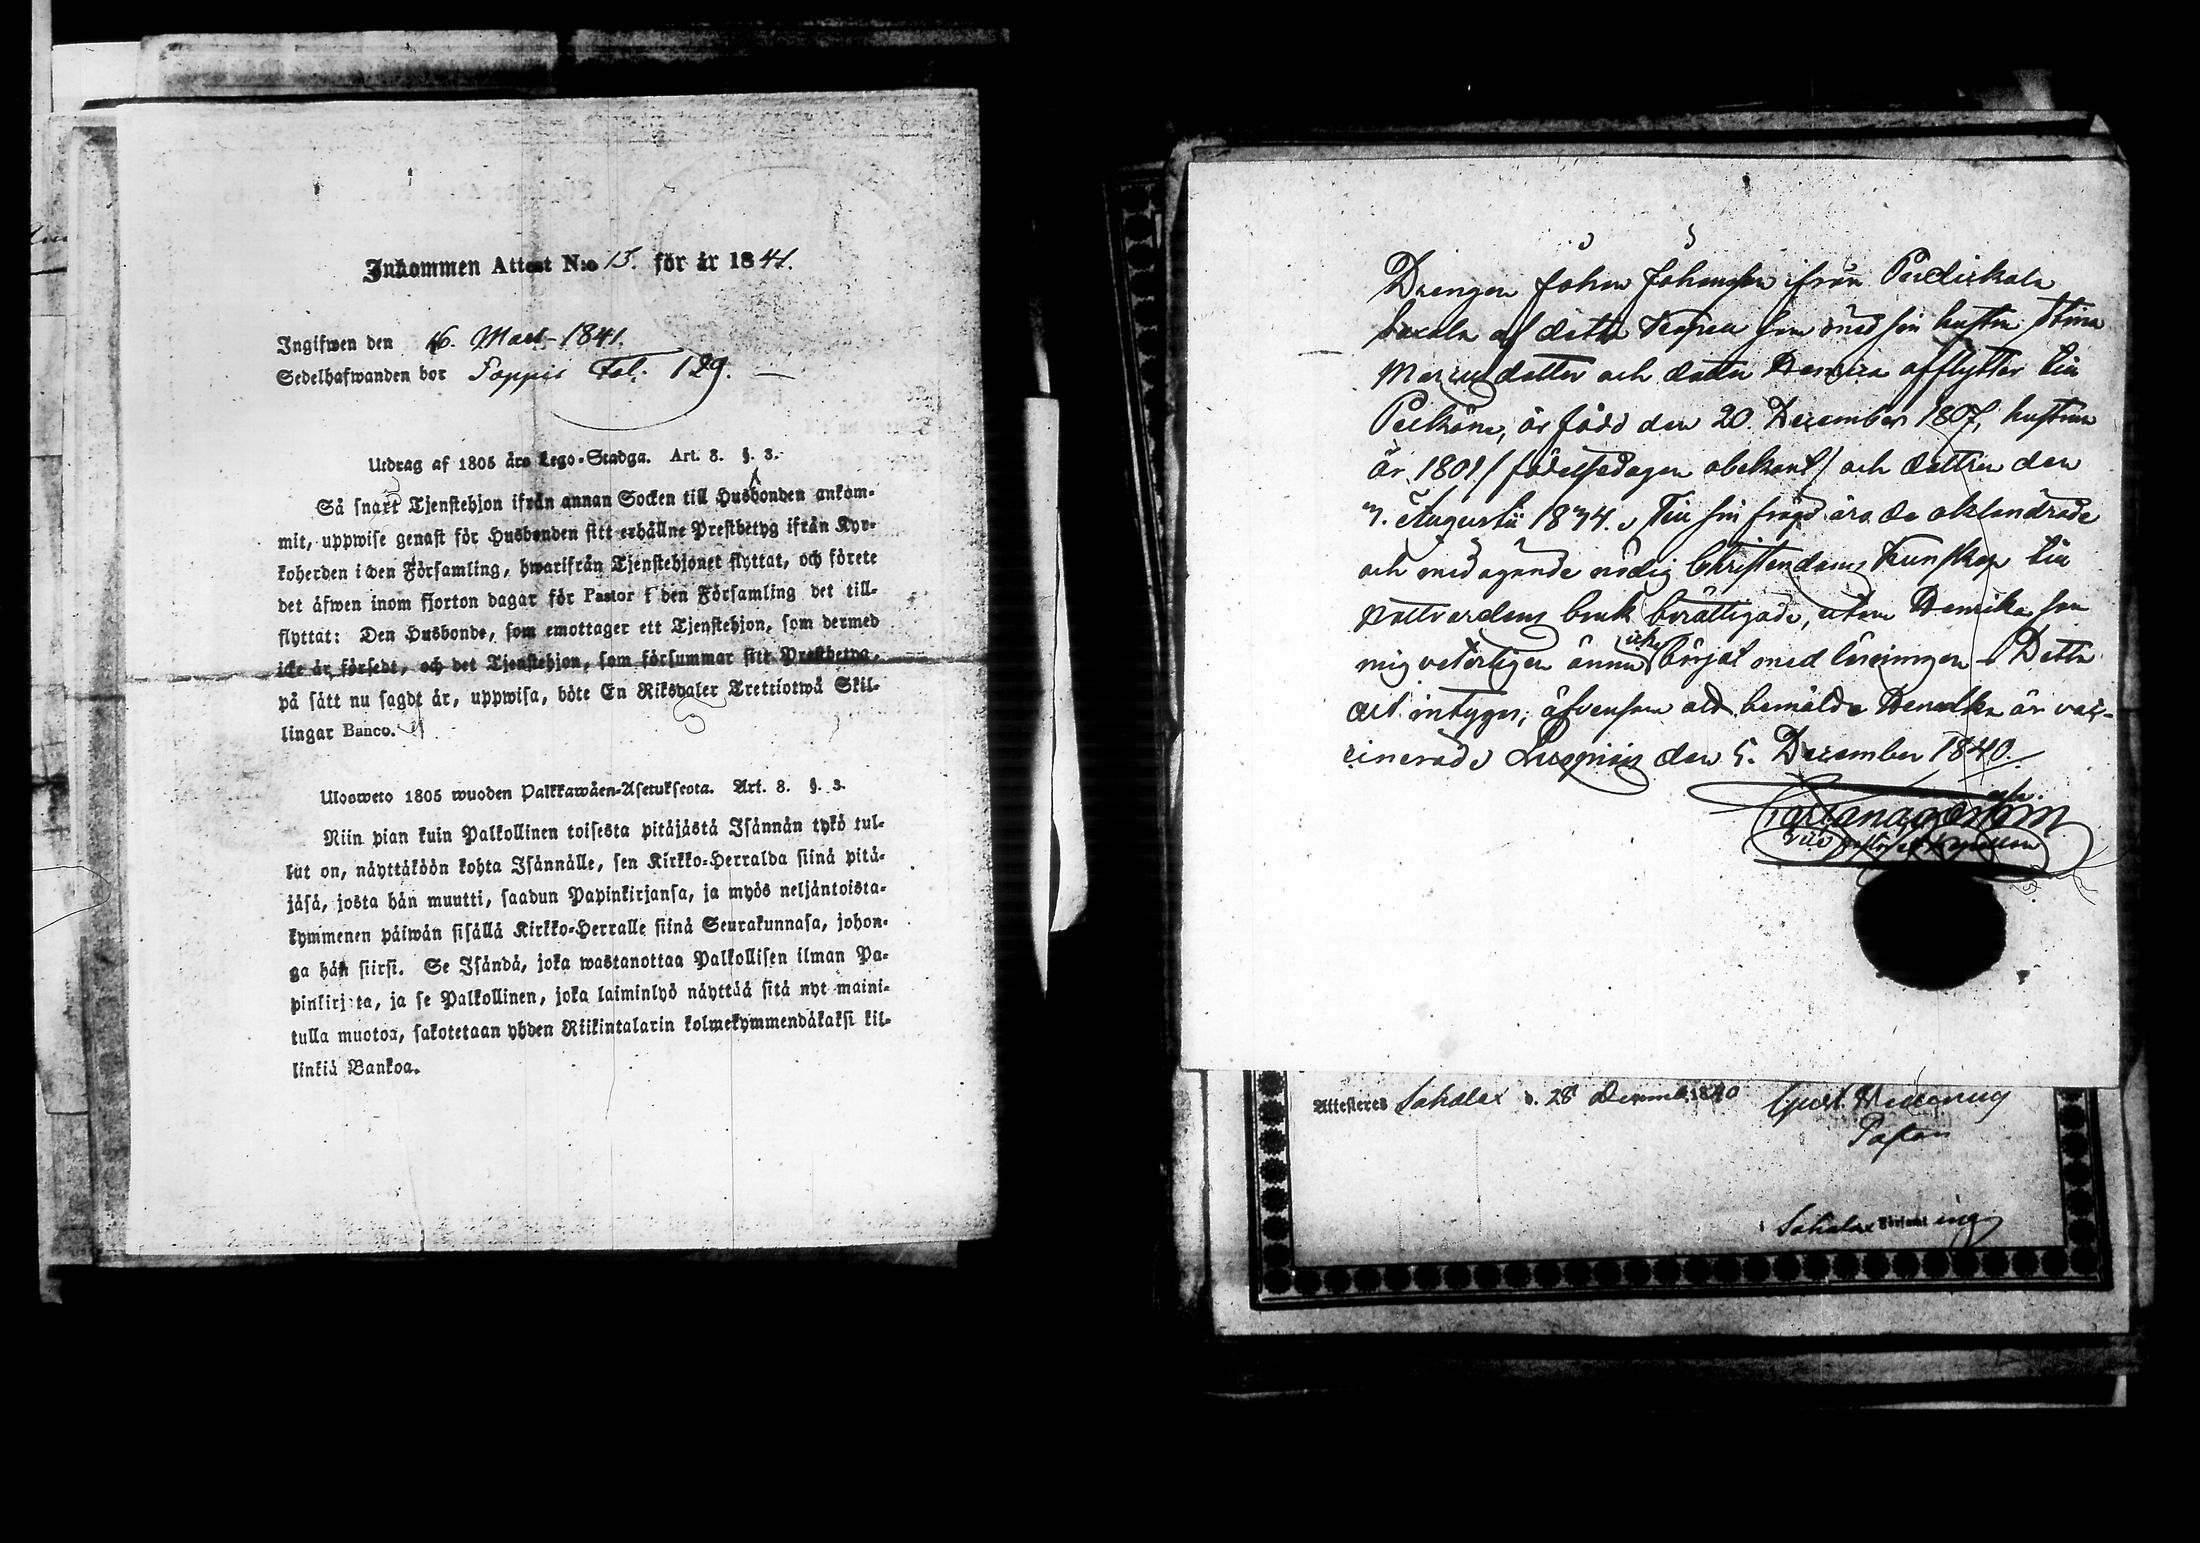 Inkommen Attest N:o 15. för år 1841.
Ingifwen den 16. Mart. 1841.
Sedelhafwanden bor Soppis Fol. 129.
Utdrag af 1805 års Lego-Stadga. Art. 8. §. 3.
Så snart Tjenstehjon ifrån annan Socken till Husbonden ankom-
mit, uppwise genast för Husbonden sitt erhållne Prestbetyg ifrån Kyr-
koherden i den Församling, hwarifrån Tjenstehjonet flyttat, och förete
det äfwen inom fjorton dagar för Pastor i den Församling det till-
flyttat: Den Husbonde, som emottager ett Tjenstehjon, som dermed
icke är försedt, och det Tjenstehjon, som försummar sitt Prestbetyg,
på sätt nu sagdt är, uppwisa, böte En Riksdaler Trettiotwå Skil-
lingar Banco.
Ulosweto 1805 wuoden Palkkawäen-Asetuksesta. Art. 8. §. 3.
Niin pian kuin Palkollinen toisesta pitäjästä Isännän tykö tul-
lut on, näyttäköön kohta Isännälle, sen Kirkko-Herralda siinä pitä-
jäsä, josta hän muutti, saadun Papinkirjansa, ja myös neljäntoista-
kymmenen päiwän sisällä Kirkko-Herralle siinä Seurakunnasa, johon-
ga hän siirsi. Se Isändä, joka wastanottaa Palkollisen ilman Pa-
pinkirjata, ja se Palkollinen, joka laiminlyö näyttää sitä nyt maini-
tulla muotoa, sakotetaan yhden Riikintalarin kolmekymmendäkaksi kil-
linkiä Bankoa.
Drengen Johan Johansson ifrån
af detta som med sin hustru Stina
dotter och dotter Henrica afflyttar till
Pelkäne, är född den 20. December 1807, hustrun
år 1801 / födelsedagen obekant / och dottren den
7. Augusti 1834. Till sin frägd äro de oklandrade
och med ägande nödig Christendoms Kunskap till
Nattvardens bruk berättigade, utom Henrika som
mig veterligen ännu icke börjat med läsningen. Detta
att intygas, äfvensom att bemälde Henrika är vac-
cinerade den 5. December 1840.
Attesteres Sahalax d. 28 Decemb. 1840
Pastor
i Sahalax Församling